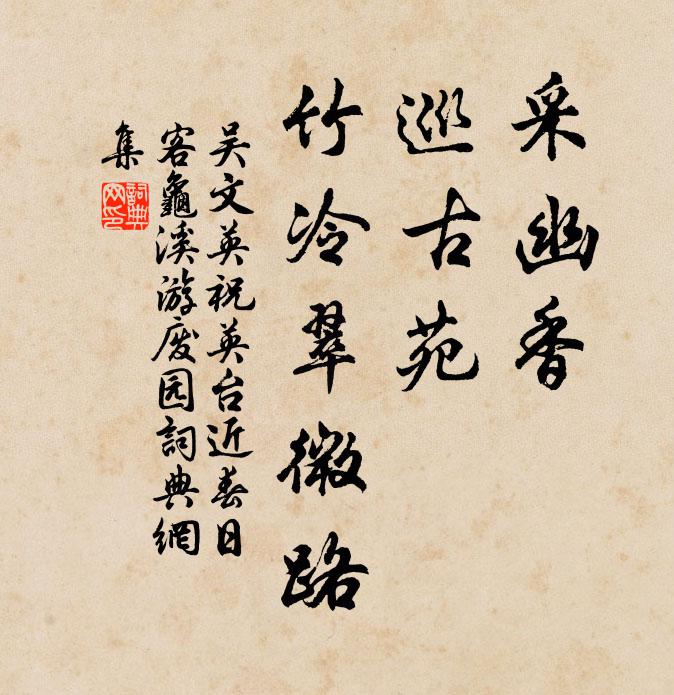 采幽香
巡古苑
竹冷翠微路
吴文英祝英台近春日
客龜溪游废园詞典網
集
詞典
网印